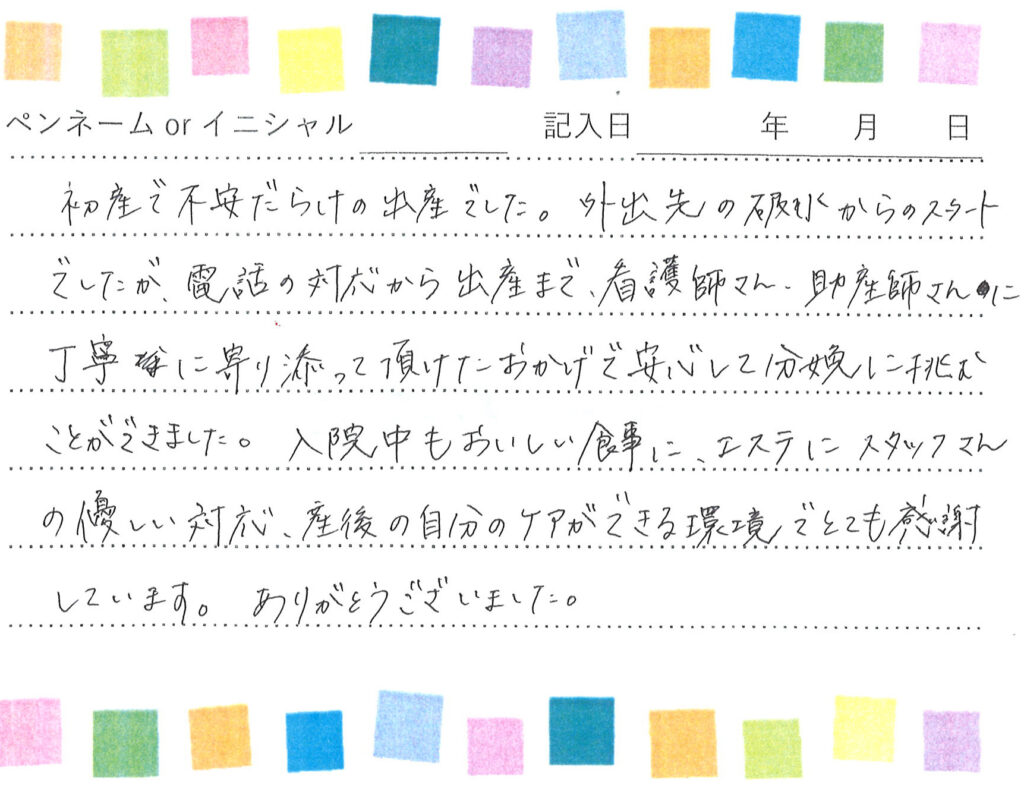 ペンネーム or イニシャル 記入日 年 月 日
初産で不安だらけの出産でした。外出先の破水からのスタート
でしたが、電話の対応から出産まで、看護師さん、助産師さんに
丁寧に寄り添って頂けたおかげで安心して分娩に挑む
ことができました。入院中もおいしい食事に、エステにスタッフさん
の優しい対応、産後の自分のケアができる環境でとても感謝
しています。ありがとうございました。